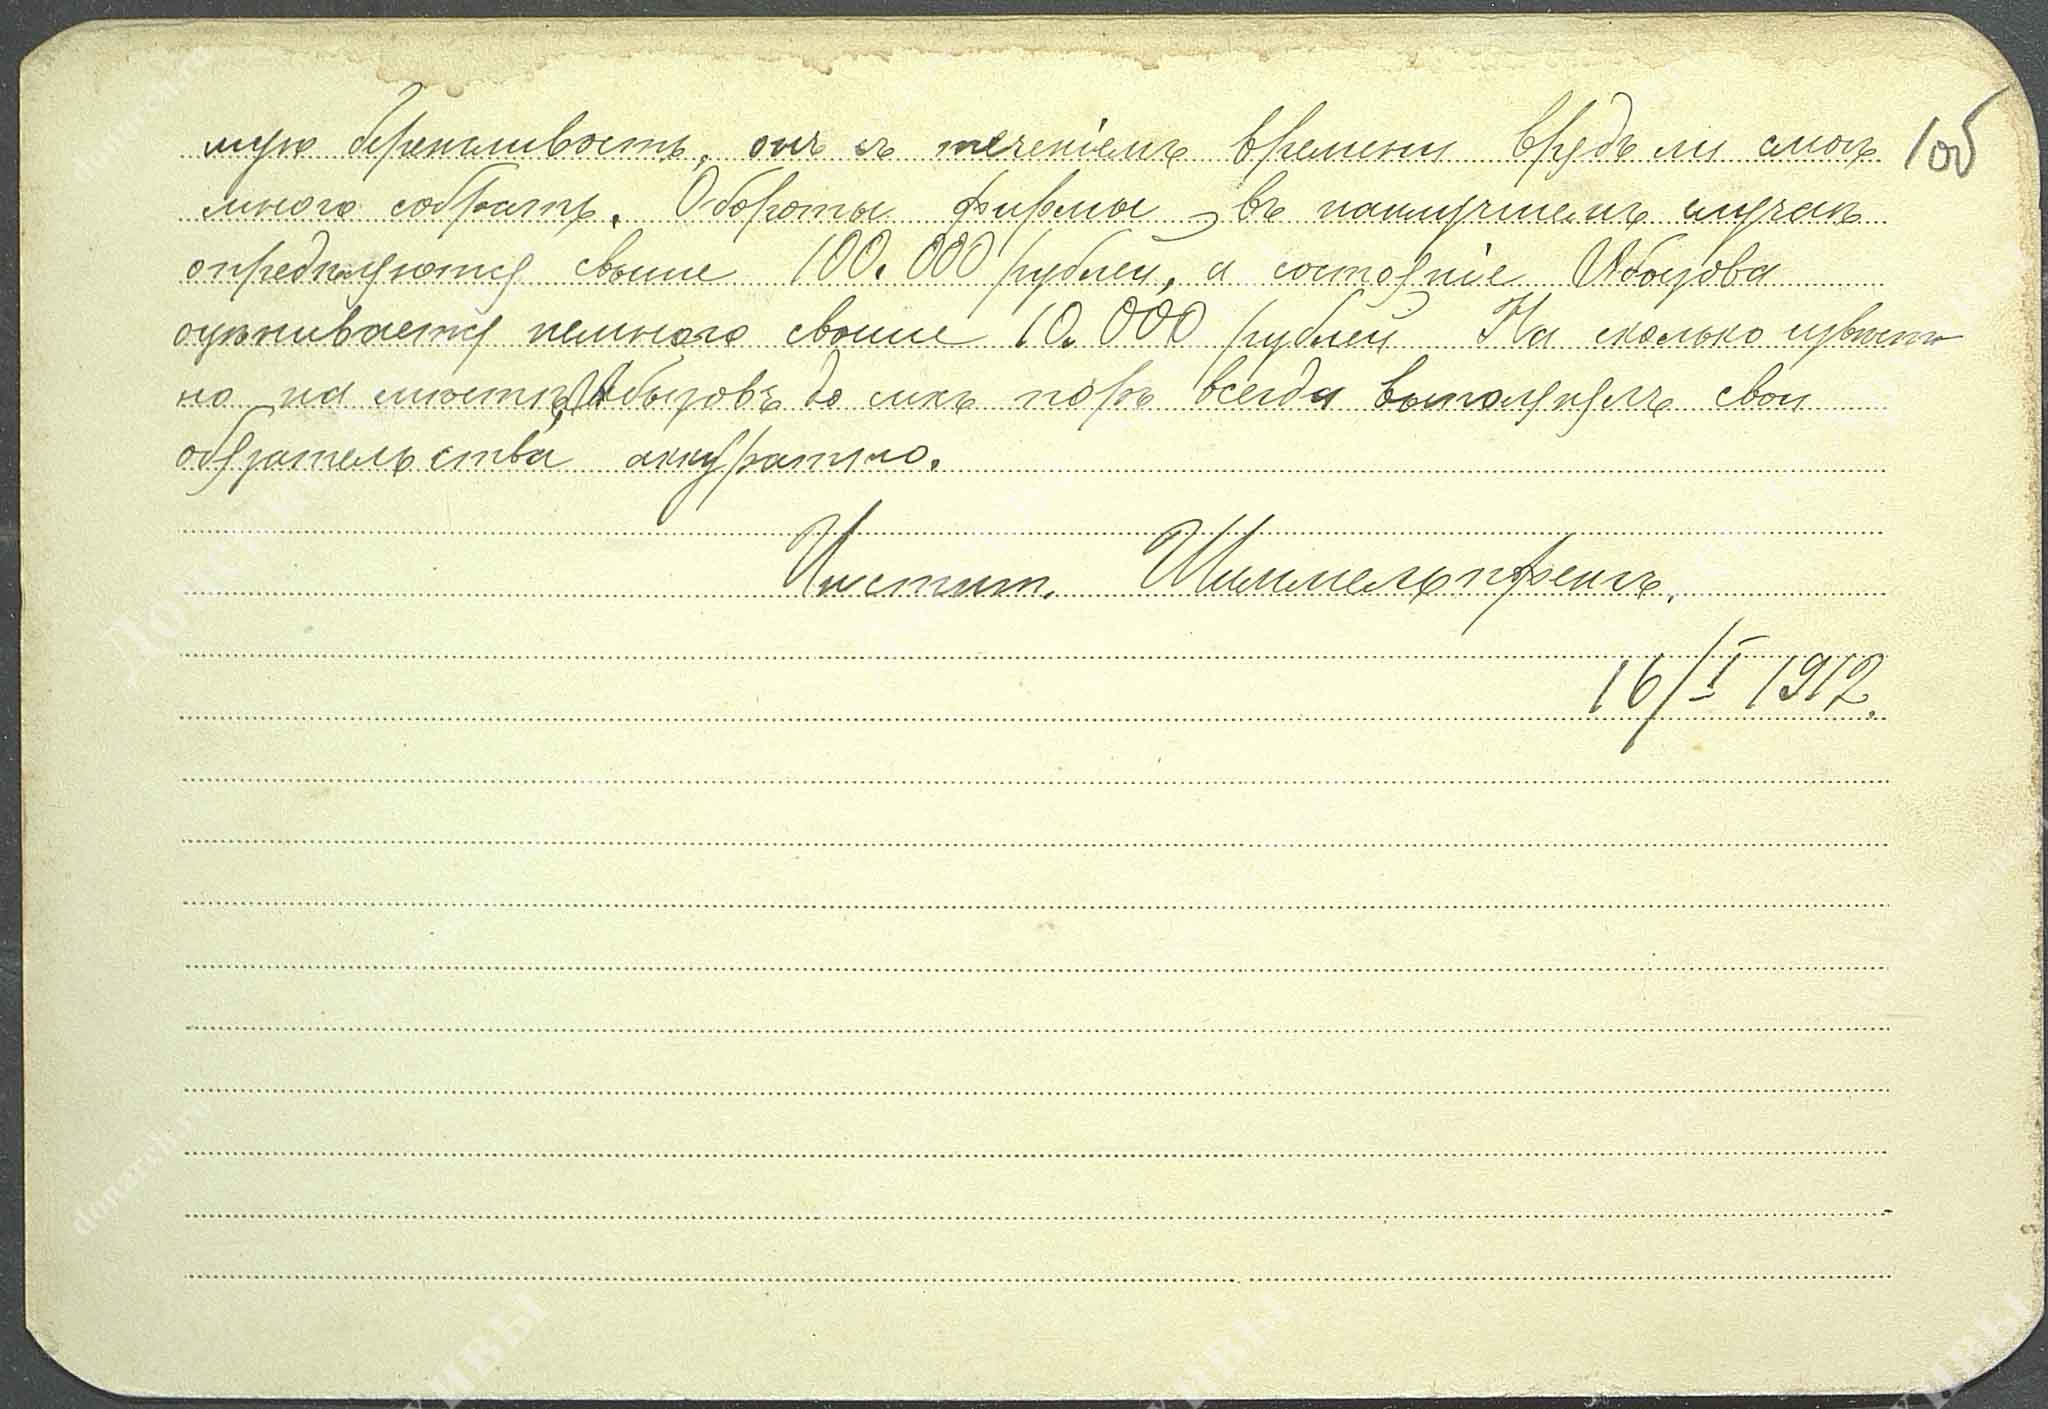 мую бережливость, онъ съ теченіемъ времени врядъ ли смогъ 1об
много собрать. Обороты фирмы въ наилучшемъ случаѣ
опредѣляются свыше 100.000 рублей, а состояніе Абызова
оцѣнивается немного свыше 10.000 рублей На сколько извѣст
но на мѣстѣ, Абызовъ до сихъ поръ всегда выполнялъ свои
обязательства аккуратно.
Инстит. Шиммельпфенгъ.
16/I 1912.
donarch.ru